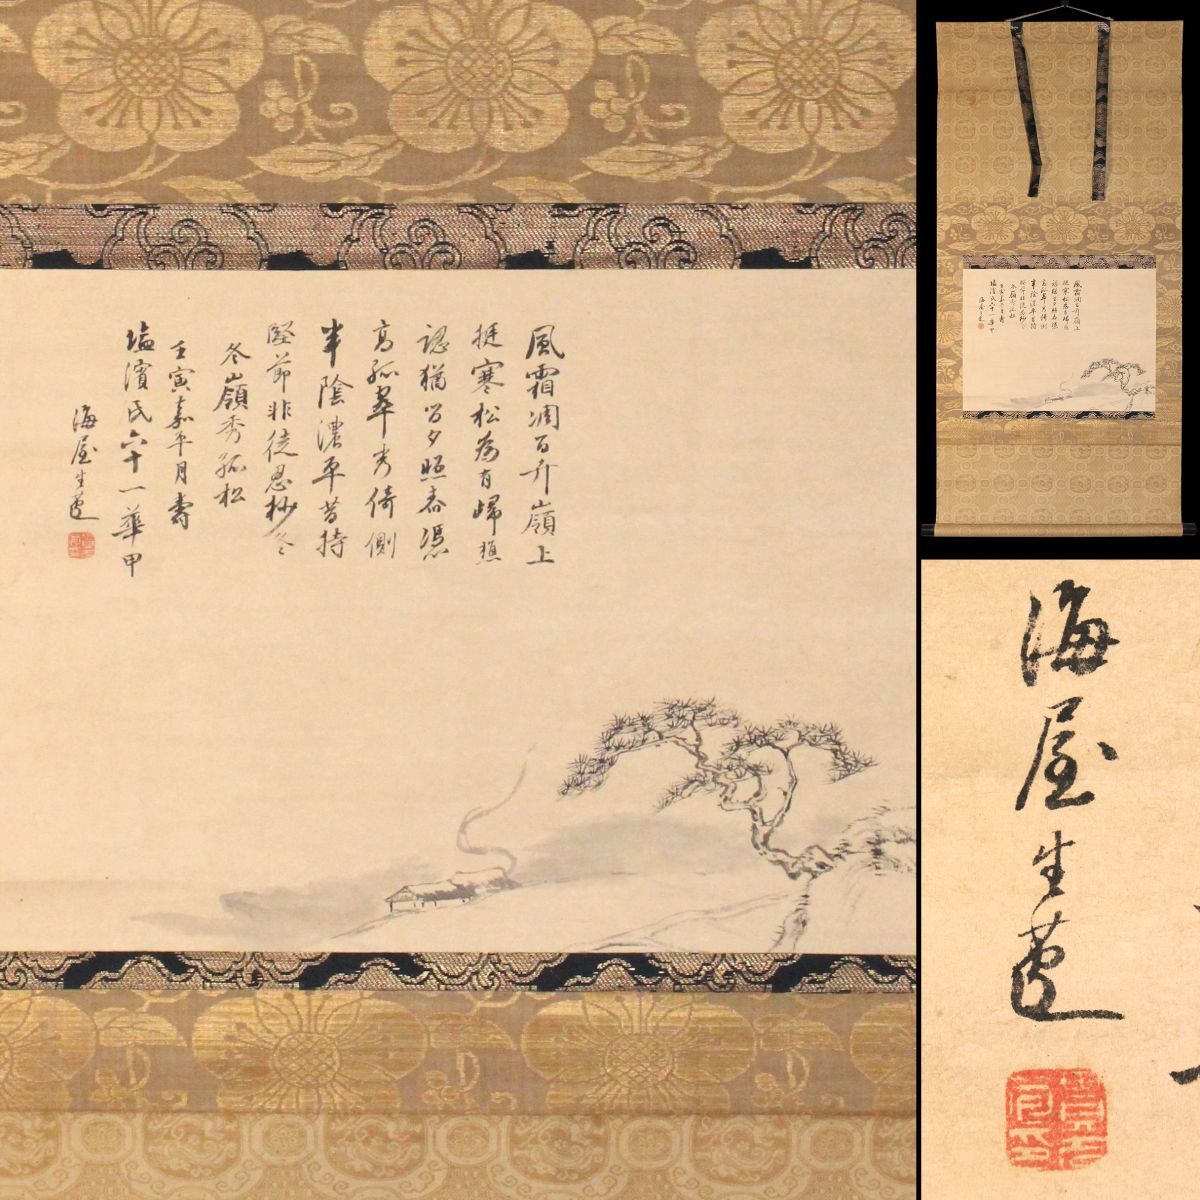 風霜凋百卉嶺上
挺寒松為有歸樵
認猶留夕照舂憑
高孤翠秀倚側
半陰濃平昔持
堅節非徒忍杪冬
冬嶺秀孤松
壬寅嘉平月壽
塩濱氏六十一華甲
海屋生苞
海屋生苞